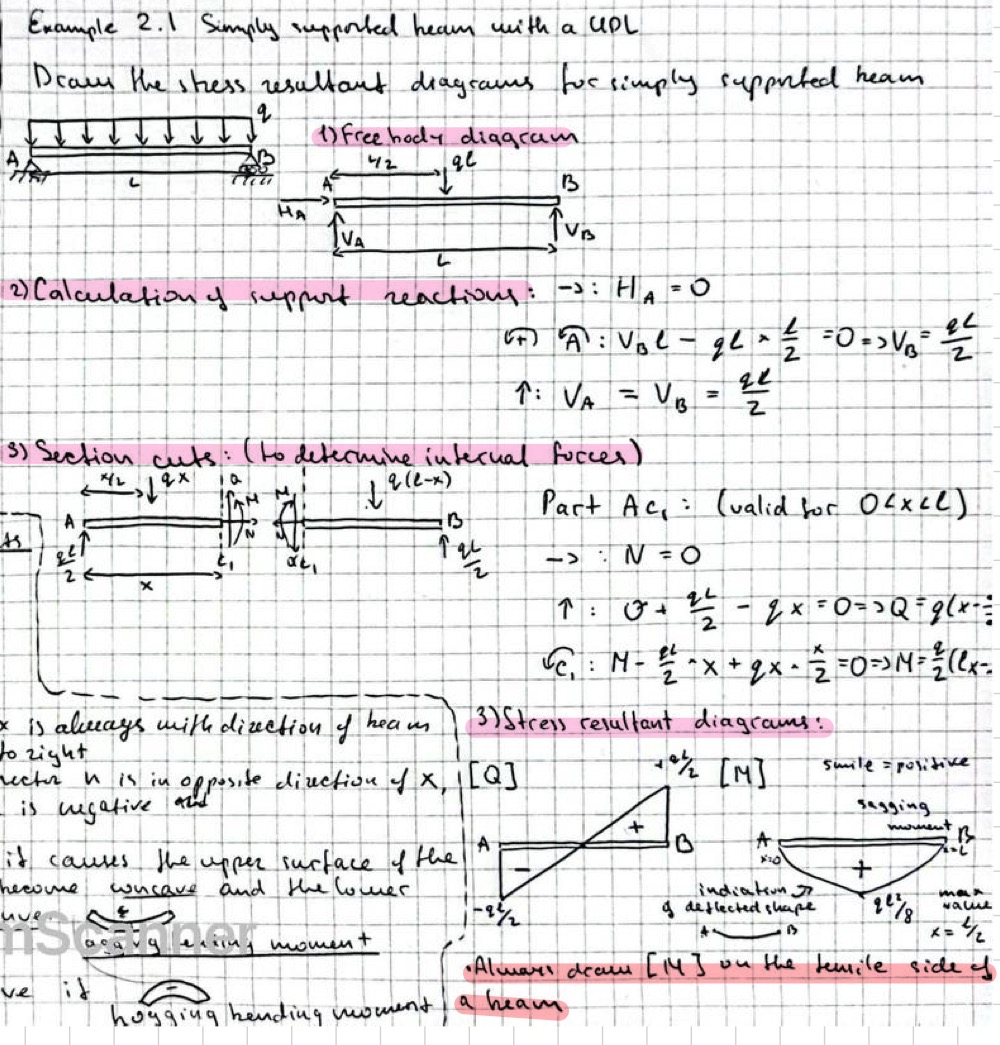 Example 2.1 Simply supported beam with a UDL
Draw the stress resultant diagrams for simply supported beam
q
A B
L
1) Free body diagram
L/2 qL
A B
HA
VA VB
L
2) Calculation of support reactions: →: HA = 0
(+) A: VB L − qL × L/2 = 0 => VB = qL/2
↑: VA = VB = qL/2
3) Section cuts: (to determine internal forces)
x/2 qx Q M N
M q(L-x)
A B
qL/2 C1 Q C1 qL/2
x
Part AC1: (valid for 0<x<L)
→: N = 0
↑: Q + qL/2 − qx = 0 => Q = q(x-
C1: M − qL/2 · x + qx · x/2 = 0 => M = q/2 (Lx-
x is always with direction of beam
to right
vector n is in opposite direction of x,
is negative
it causes the upper surface of the
become concave and the lower
+
mScanner
sagging bending moment
ve if
−
hogging bending moment
3) Stress resultant diagrams:
[Q] +qL/2
A + B
−
-qL/2
[M] smile = positive
sagging
moment
A B
x=0 x=L
+
qL²/8
max
value
x = L/2
indication
of deflected shape
A B
• Always draw [M] on the tensile side of
a beam